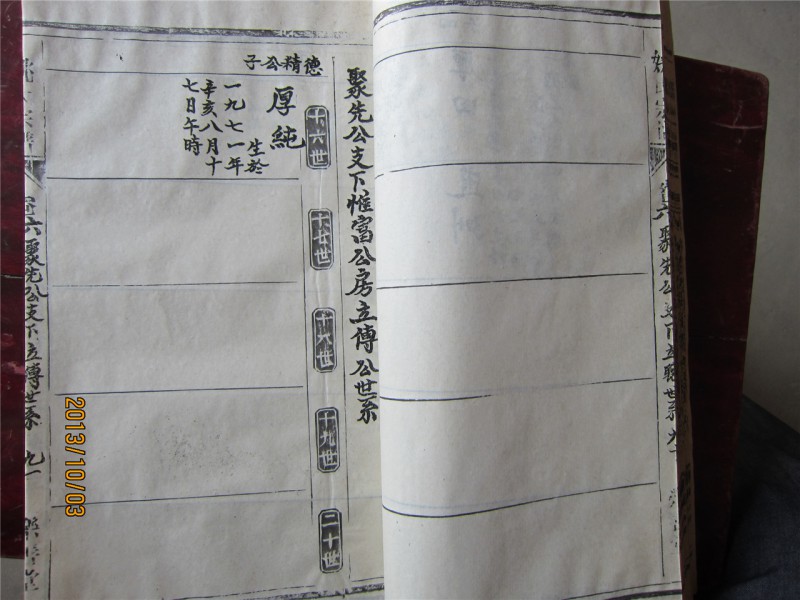 卷六 聚先公支下立
聚先公支下惟富公房立傳公世系
十六世
十七世
十八世
十九世
二十世
德精公子
厚純
生於
一九七一年
辛亥八月十
七日午時
卷六聚先公支下立傳世系 九一
2013/10/03